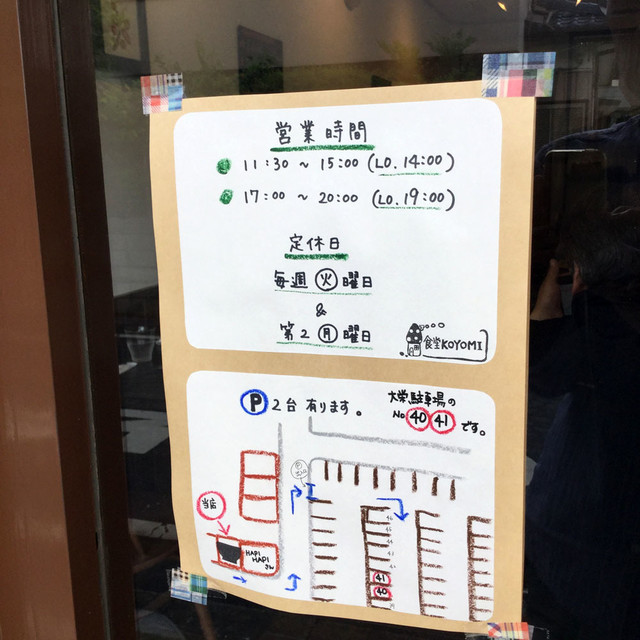 営業時間
11:30 ~ 15:00 (L.O. 14:00)
17:00 ~ 20:00 (L.O. 19:00)
定休日
毎週 火 曜日
&
第2 月 曜日
食堂KOYOMI
P 2台 有ります。
大栄駐車場の
No 40 41 です。
当店
HAPI
HAPI
41
40